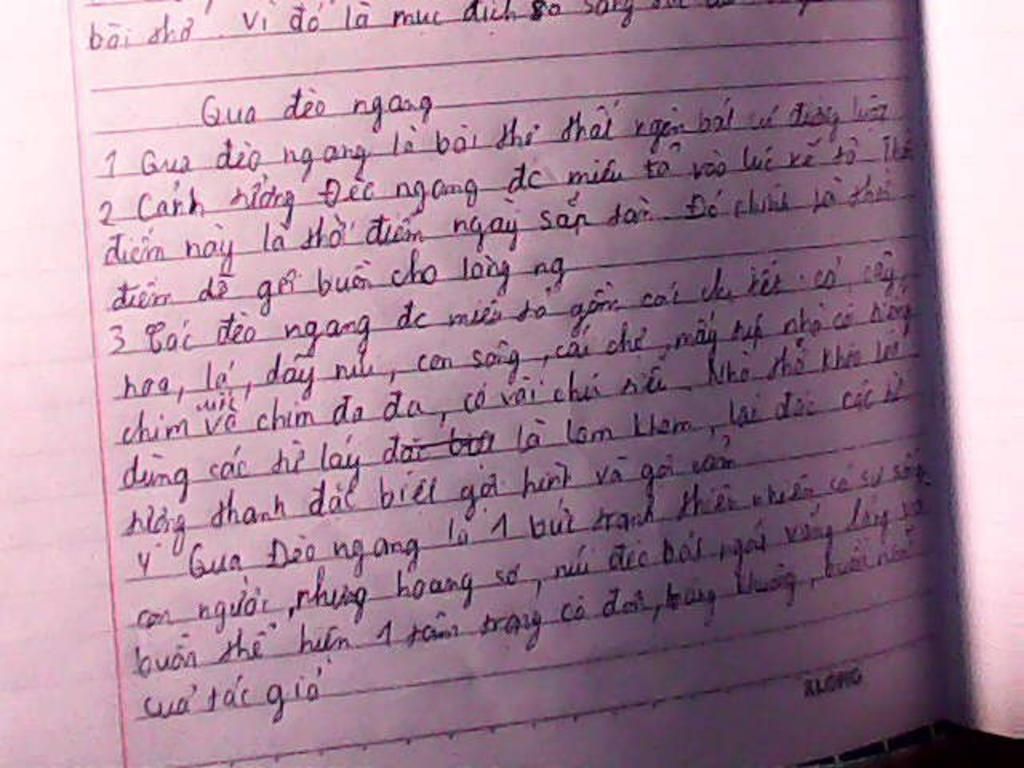 bài thơ. Vì đó là mục đích so sáng
Qua đèo ngang
1 Qua đèo ngang là bài thơ thất ngôn bát cú đường luật
2 Cảnh tượng Đèo ngang đc miêu tả vào lúc xế tà Thời
điểm này là thời điểm ngày sắp tàn. Đó chính là thời
điểm dễ gợi buồn cho lòng ng
3 Cảnh đèo ngang đc miêu tả gồm các chi tiết: cỏ, cây,
hoa, lá, dãy núi, con sông, cái chợ, mấy túp nhà có tiếng
chim cuốc và chim đa đa, có vài chú tiều. Nhà thơ khéo léo
dùng các từ láy là lom khom, lác đác các từ
tượng thanh đặc biệt gợi hình và gợi cảm
4 Qua Đèo ngang là 1 bức tranh thiên nhiên có sự sống
con người, nhưng hoang sơ, núi đèo bát ngát vắng lặng và
buồn thể hiện 1 tâm trạng cô đơn, bâng khuâng, buồn
của tác giả
KLONG